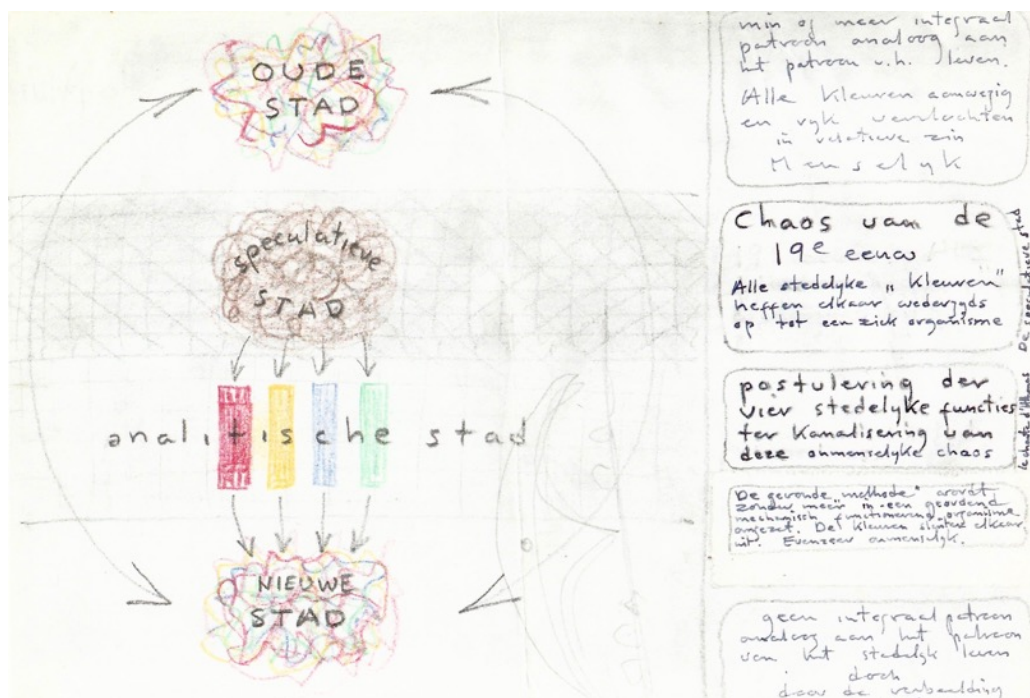 OUDE
STAD
speculatieve
STAD
analitische stad
NIEUWE
STAD
min of meer integraal
patroon analoog aan
het patroon v.h. leven.
Alle kleuren aanwezig
en ryk vervlochten
in relatieve zin
Menselyk
Chaos van de
19e eeuw
Alle stedelyke „kleuren"
heffen elkaar wederzyds
op tot een ziek organisme
De speculatieve stad
postulering der
vier stedelyke functies
ter kanalisering van
deze onmenselyke chaos
la charte d'Athènes
De gevonde „methode" wordt
zonder meer in een geordend
mechanisch functionerend organisme
omgezet. De kleuren sluiten elkaar
uit. Evenzeer onmenselyk.
geen integraal patroon
analoog aan het patroon
van het stedelyk leven
doch
door de verbeelding